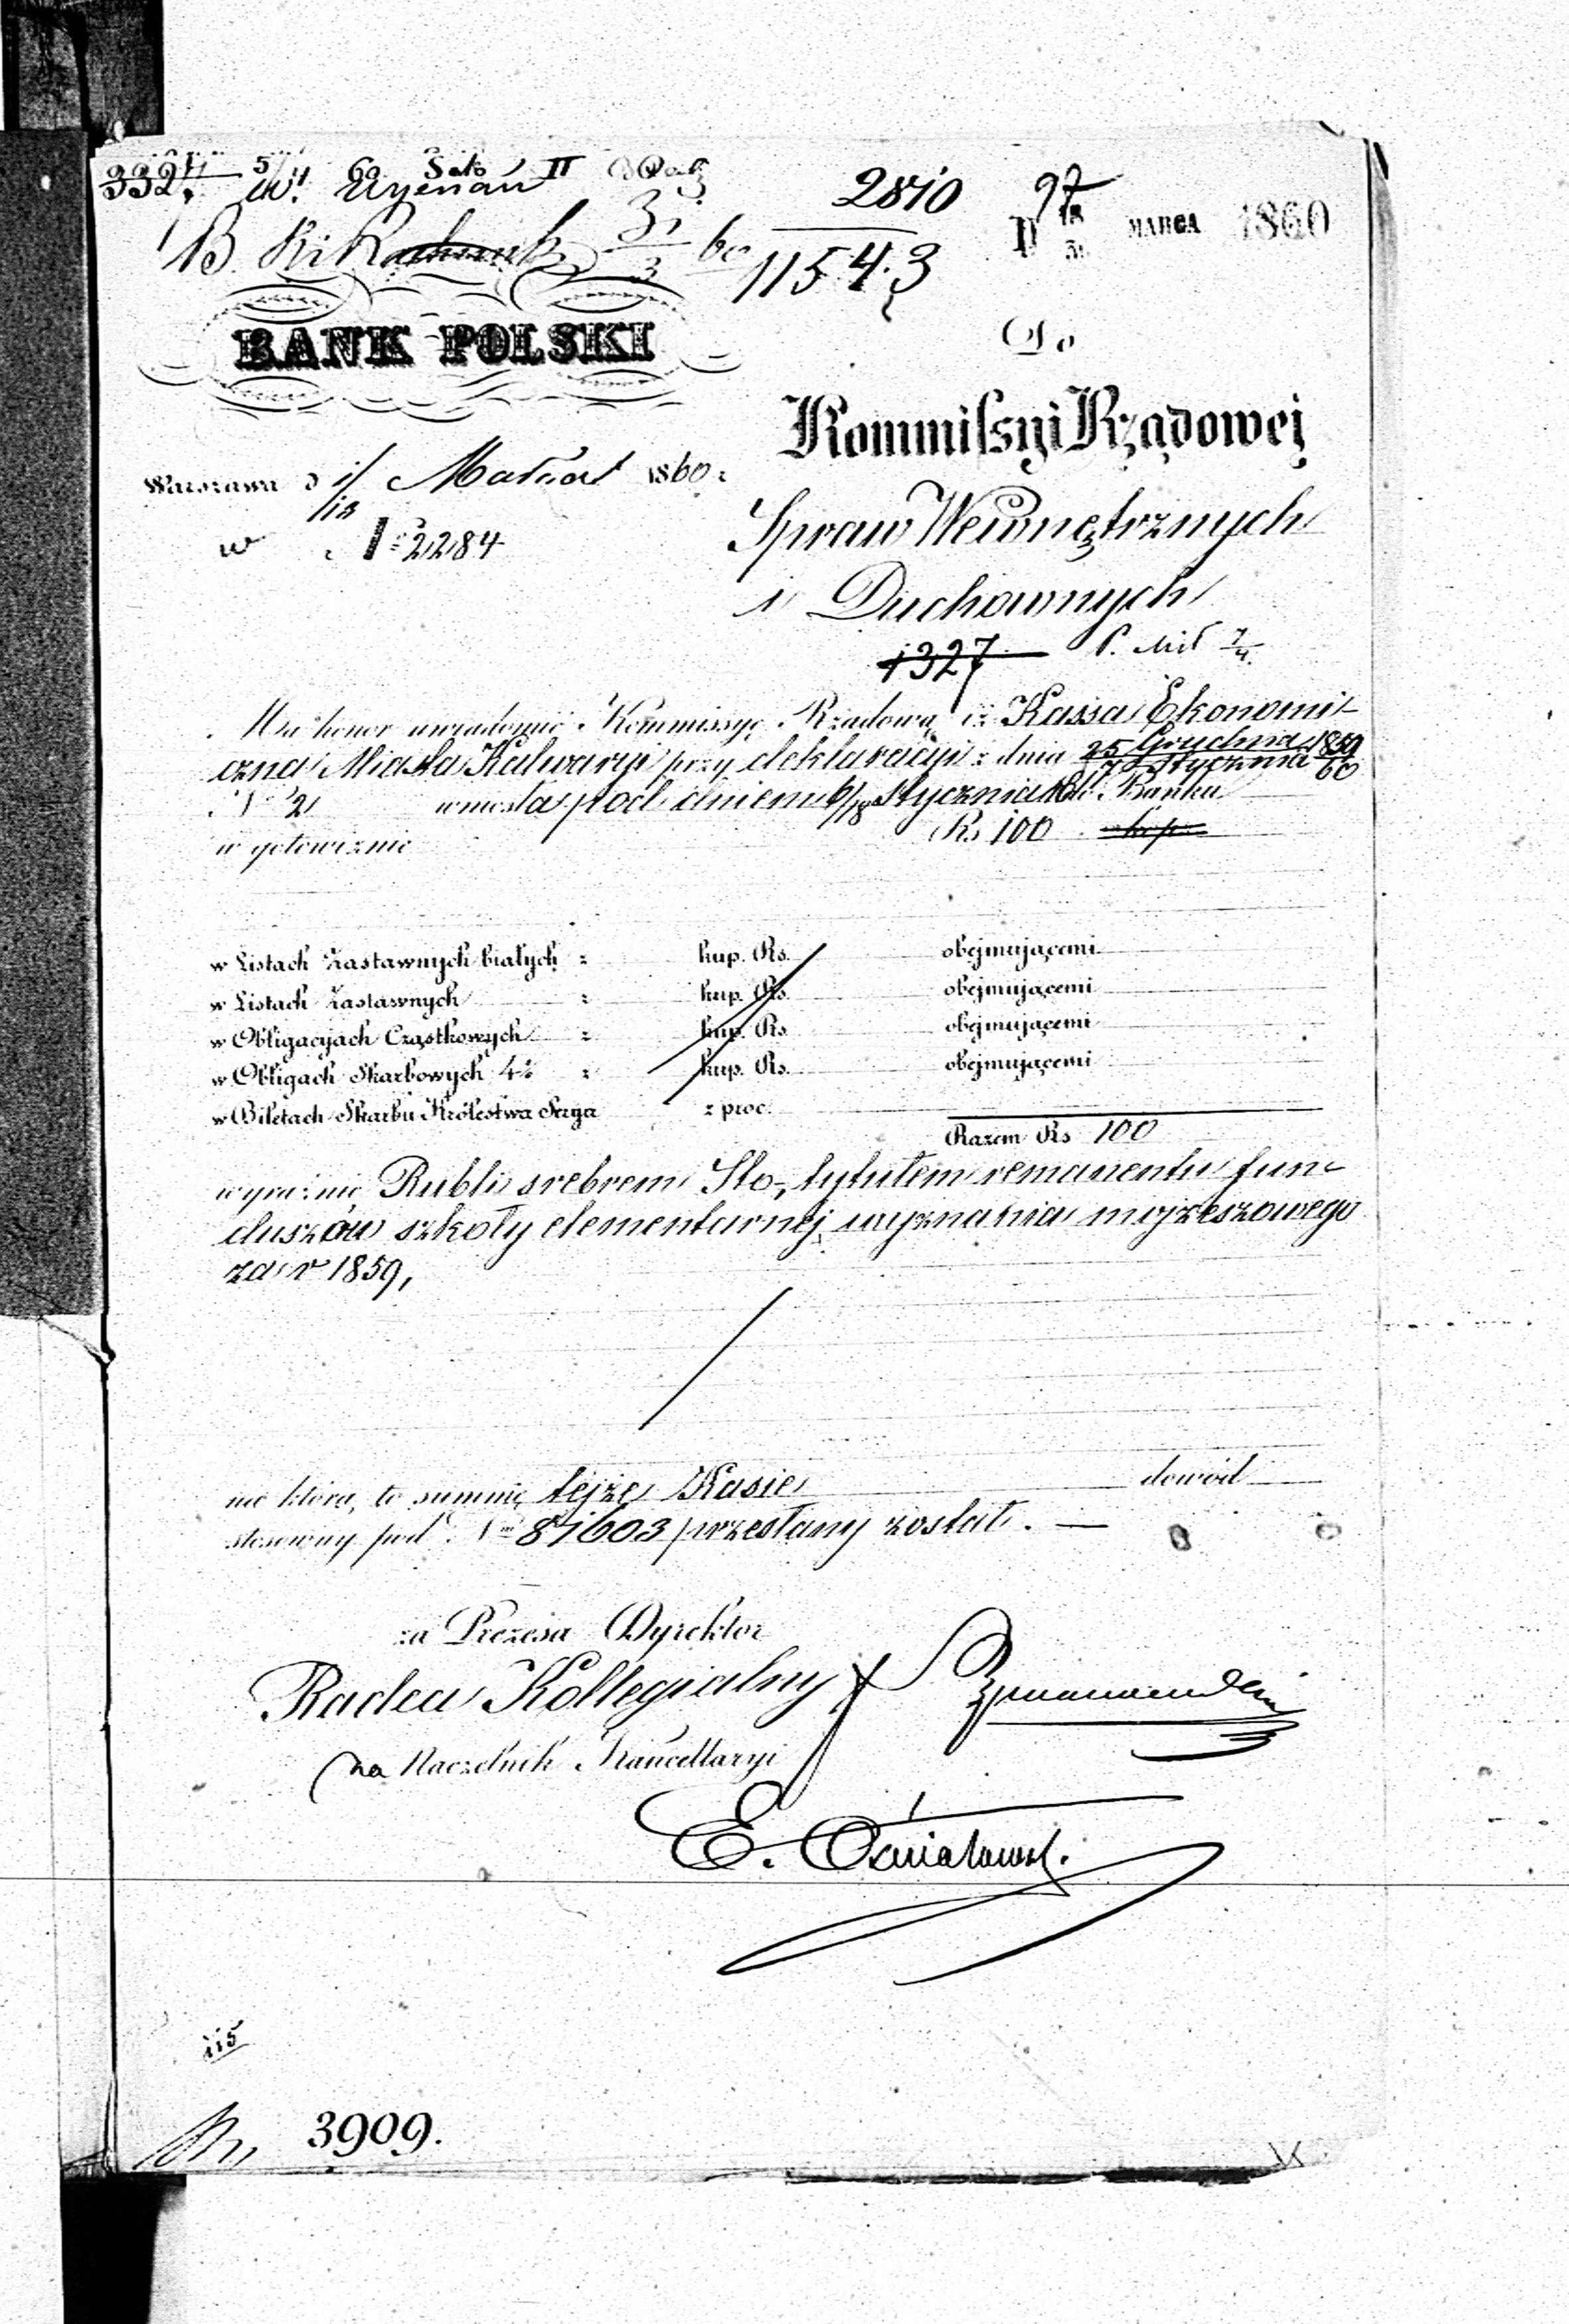 332
2810
97
1154.3
18 MARCA 1860
BANK POLSKI
Do
Kommissyi Rządowej
Warszawa d 1/13 1860 r
Spraw Wewnętrznych
w № 2284
i Duchownych
1327
Ma honor uwiadomić Kommissyę Rządową iż Kassa Ekonomi-
czna Miasta Kalwaryi przy deklaracyi z dnia 25 Grudnia 1859
7 Stycznia 60
№ 2 wniosła pod dniem 6/18 Stycznia do Banku
w gotowiznie Rs 100 kop
w Listach Zastawnych białych z kup. Rs. obejmującemi
w Listach Zastawnych z kup. Rs. obejmującemi
w Obligacyjach Cząstkowych z kup. Rs. obejmującemi
w Obligach Skarbowych 4% z kup. Rs. obejmującemi
w Biletach Skarbu Królestwa Serya z proc.
Razem Rs 100
wyraźnie Rubli srebrem Sto, tytułem remanentu fun-
duszów szkoły elementarnej wyznania mojżeszowego
za r 1859,
na którą to summę tejże Kasie dowód
stosowny pod № 87603 przesłany został.
za Prezesa Dyrektor
Radca Kollegialny
za Naczelnik Kancellaryi
115
3909.